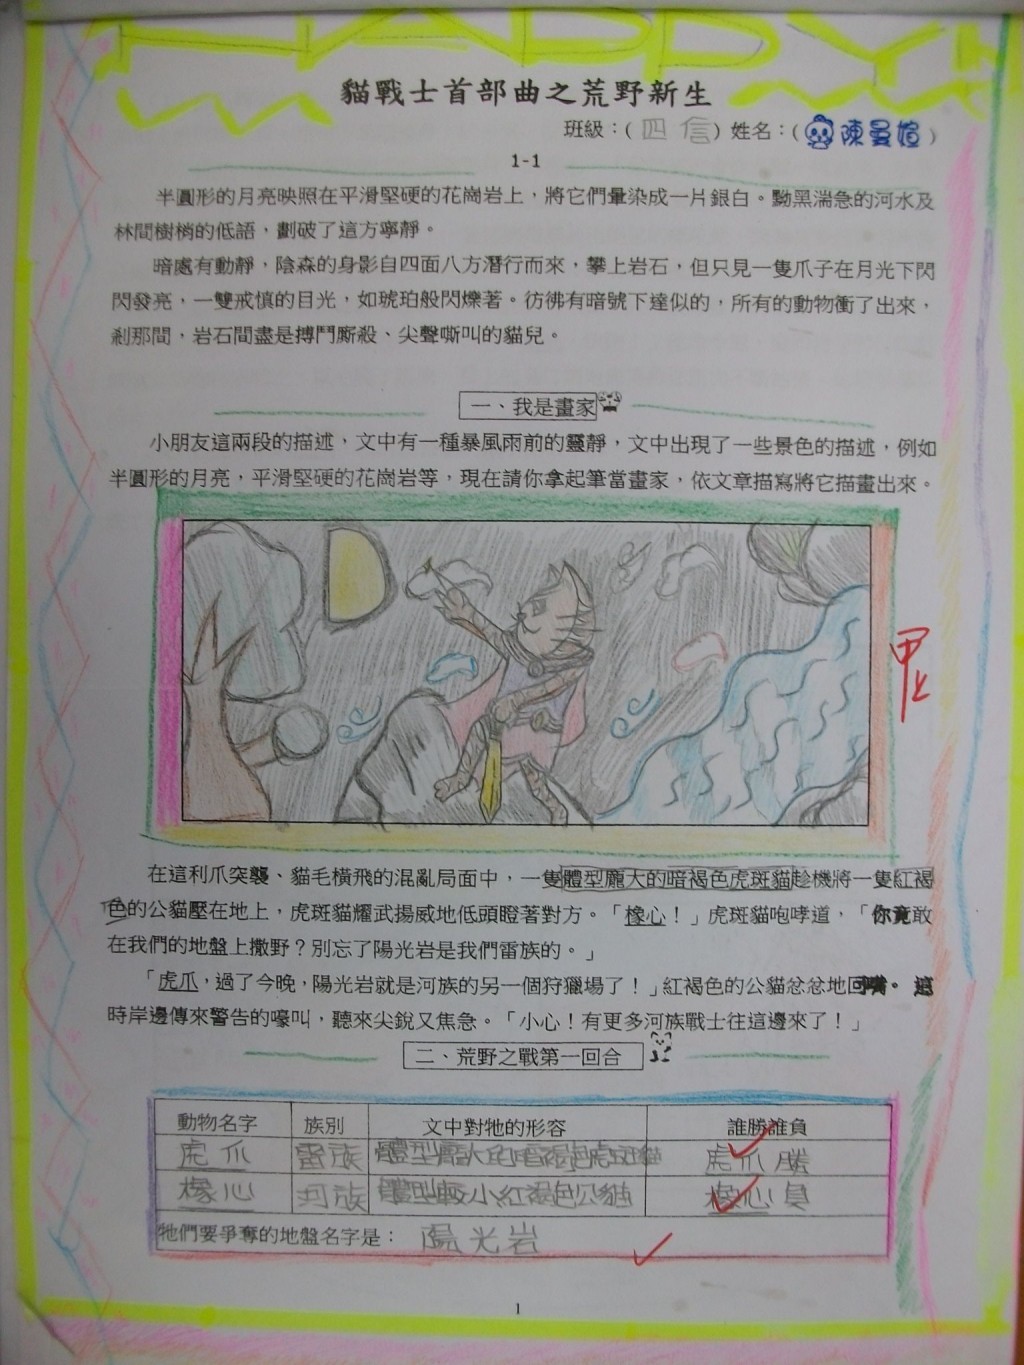 HAPPY
貓戰士首部曲之荒野新生
班級：( 四 信 ) 姓名：( 陳曼媗 )
1-1
半圓形的月亮映照在平滑堅硬的花崗岩上，將它們暈染成一片銀白。黝黑湍急的河水及
林間樹梢的低語，劃破了這方寧靜。
暗處有動靜，陰森的身影自四面八方潛行而來，攀上岩石，但只見一隻爪子在月光下閃
閃發亮，一雙戒慎的目光，如琥珀般閃爍著。彷彿有暗號下達似的，所有的動物衝了出來，
剎那間，岩石間盡是搏鬥廝殺、尖聲嘶叫的貓兒。
一、我是畫家
小朋友這兩段的描述，文中有一種暴風雨前的靈靜，文中出現了一些景色的描述，例如
半圓形的月亮，平滑堅硬的花崗岩等，現在請你拿起筆當畫家，依文章描寫將它描畫出來。
甲上
在這利爪突襲、貓毛橫飛的混亂局面中，一隻體型龐大的暗褐色虎斑貓趁機將一隻紅褐
色的公貓壓在地上，虎斑貓耀武揚威地低頭瞪著對方。「橡心！」虎斑貓咆哮道，「你竟敢
在我們的地盤上撒野？別忘了陽光岩是我們雷族的。」
「虎爪，過了今晚，陽光岩就是河族的另一個狩獵場了！」紅褐色的公貓忿忿地回嘴。這
時岸邊傳來警告的嚎叫，聽來尖銳又焦急。「小心！有更多河族戰士往這邊來了！」
二、荒野之戰第一回合
動物名字 族別 文中對牠的形容 誰勝誰負
虎爪 雷族 體型龐大的暗褐色虎斑貓 虎爪勝
橡心 河族 體型較小紅褐色公貓 橡心負
牠們要爭奪的地盤名字是： 陽光岩
1